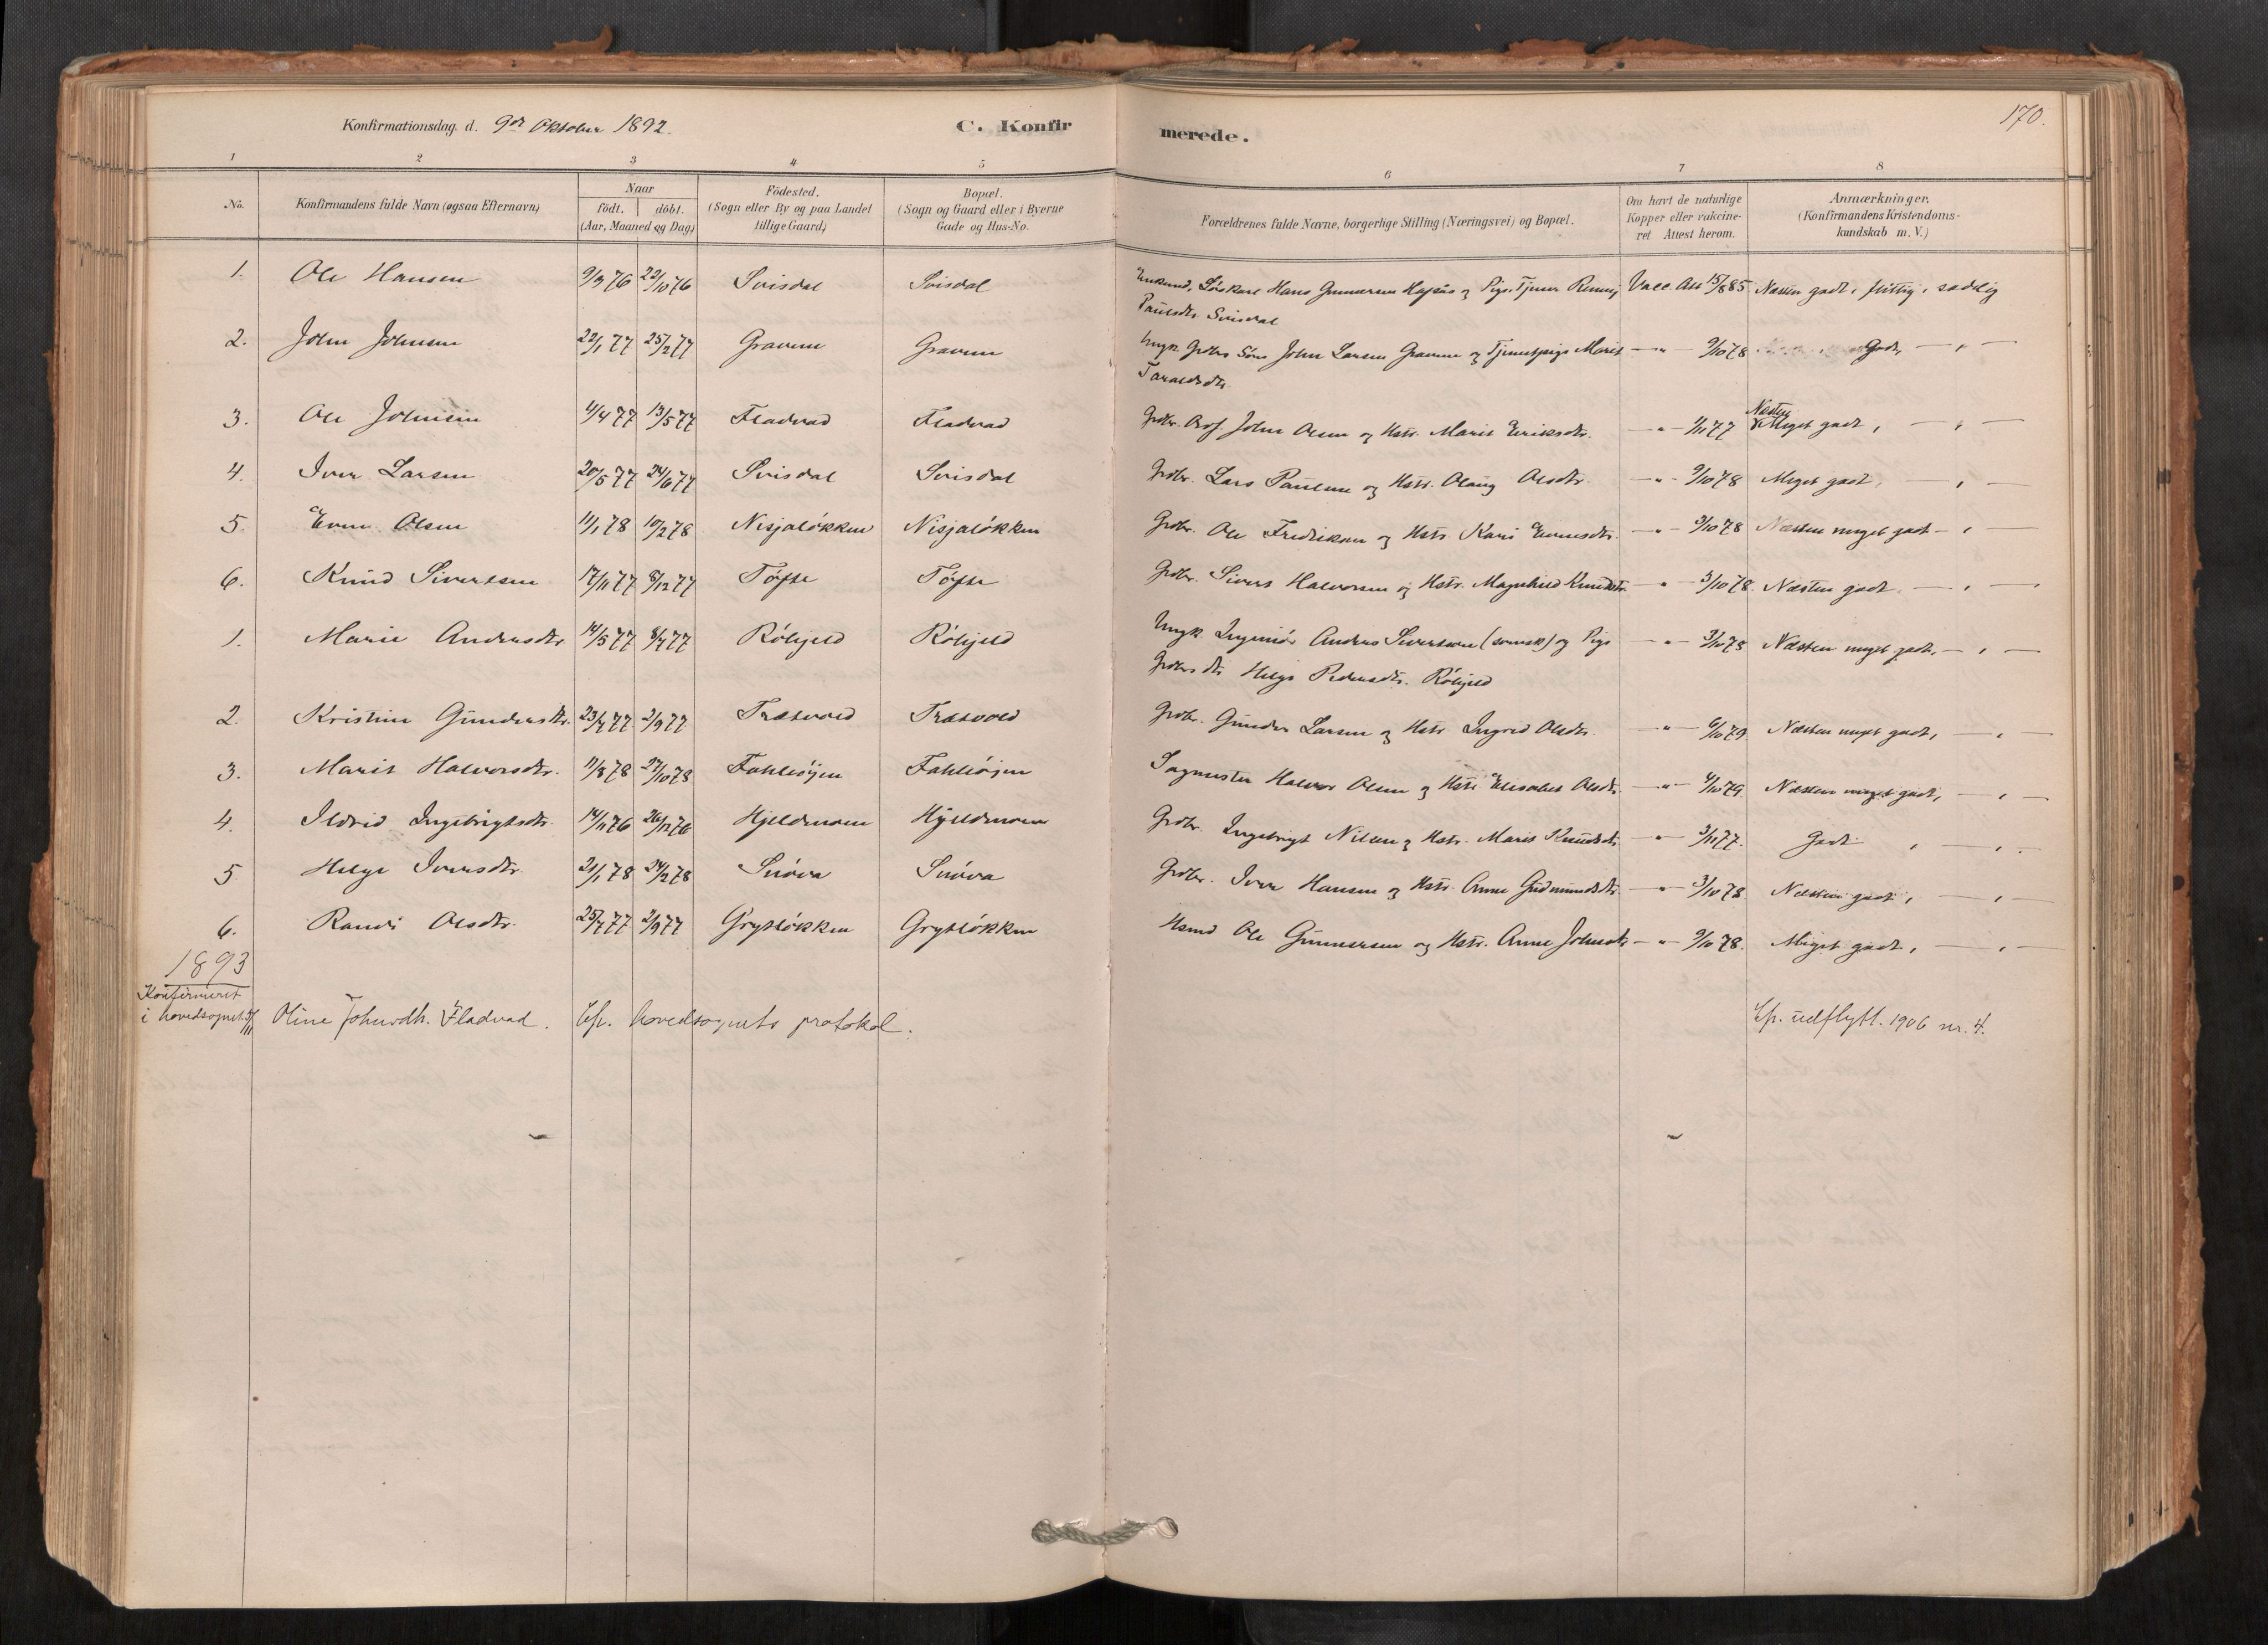 Konfirmationsdag. d. 9de Oktober 1892. C. Konfirmerede. 170.
1 2 3 4 5 6 7 8
No. Konfirmandens fulde Navn (ogsaa Efternavn) Naar födt. döbt. (Aar, Maaned og Dag) Födested. (Sogn eller By og paa Landet tillige Gaard) Bopæl. (Sogn og Gaard eller i Byerne Gade og Hus-No. Forældrenes fulde Navne, borgerlige Stilling (Næringsvei) og Bopæl. Om havt de naturlige Kopper eller vakcineret Attest herom. Anmærkninger. (Konfirmandens Kristendomskundskab m. V.)
1. Ole Hansen 9/9 76 22/10 76 Svisdal Svisdal Enkemd, Hans Gunnarsen og Pige Tjener Vacc. Att 15/8 85 Næsten godt, flittig, sædelig
Paulsdtr. Svisdal
2. John Johnsen 22/1 77 25/2 77 Gravem Gravem Ungk. Grdbrs Søn John Larsen Gravem og Tjenestpige Marit —"— 9/10 78 Godt, — " —
Taraldsdtr.
3. Ole Johnsen 4/4 77 13/5 77 Fladvad Fladvad Grdbr. John Olsen og Hstr. Marit Eriksdtr. —"— 1/11 77 Næsten Meget godt, — " —
4. Iver Larsen 20/5 77 24/6 77 Svisdal Svisdal Grdbr. Lars Paulsen og Hstr. Olaug Olsdtr. —"— 9/10 78 Meget godt, — " —
5. Even Olsen 11/1 78 10/2 78 Nisjaløkken Nisjaløkken Grdbr. Ole Fredriksen og Hstr. Kari Evensdtr. —"— 3/10 78 Næsten meget godt — " —
6. Knud Sivertsen 17/11 77 8/12 77 Tøfte Tøfte Grdbr. Sivert Halvorsen og Hstr. Magnhild Knudsdtr. —"— 3/10 78. Næsten godt, — " —
1. Marie Andersdtr. 14/5 77 8/7 77 Röhjeld Röhjeld Ungk. Ingeniör Anders Sivertsen (svensk) og Pige —"— 3/10 78 Næsten meget godt, — " —
Grdbrs dtr. Helge Pedersdtr. Röhjeld
2. Kristine Gundersdtr. 23/7 77 2/9 77 Træsvold Træsvold Grdbr. Gunder Larsen og Hstr. Ingrid Olsdtr. —"— 6/10 79. Næsten meget godt, — " —
3. Marit Halvorsdtr. 11/8 78 27/10 78 Fahlesøjen Fahlesøjen Sagmester Halvor Olsen og Hstr. Elisabet Olsdtr. —"— 4/10 79. Næsten meget godt, — " —
4. Ildrid Ingebrigtsdtr. 14/11 76 26/12 76 Hjeldmoen Hjeldmoen Grdbr. Ingebrigt Nilsen og Hstr. Marit Knudsdtr. —"— 3/11 77. Godt, — " —
5 Helge Iversdtr. 21/1 78 24/2 78 Snøva Snøva Grdbr. Iver Hansen og Hstr. Anne Gudmundsdtr. —"— 3/10 78 Næsten godt, — " —
6. Randi Olsdtr. 25/7 77 2/9 77 Grytløkken Grytløkken Hsmd Ole Gunnarsen og Hstr. Anne Johnsdtr. —"— 9/10 78. Meget godt, — " —
1893
Konfirmeret
i hovedsognet Oline Johnsdtr. Fladvad. Cfr. hovedsognets protokol. Cfr. udflytt. 1906 nr. 4.